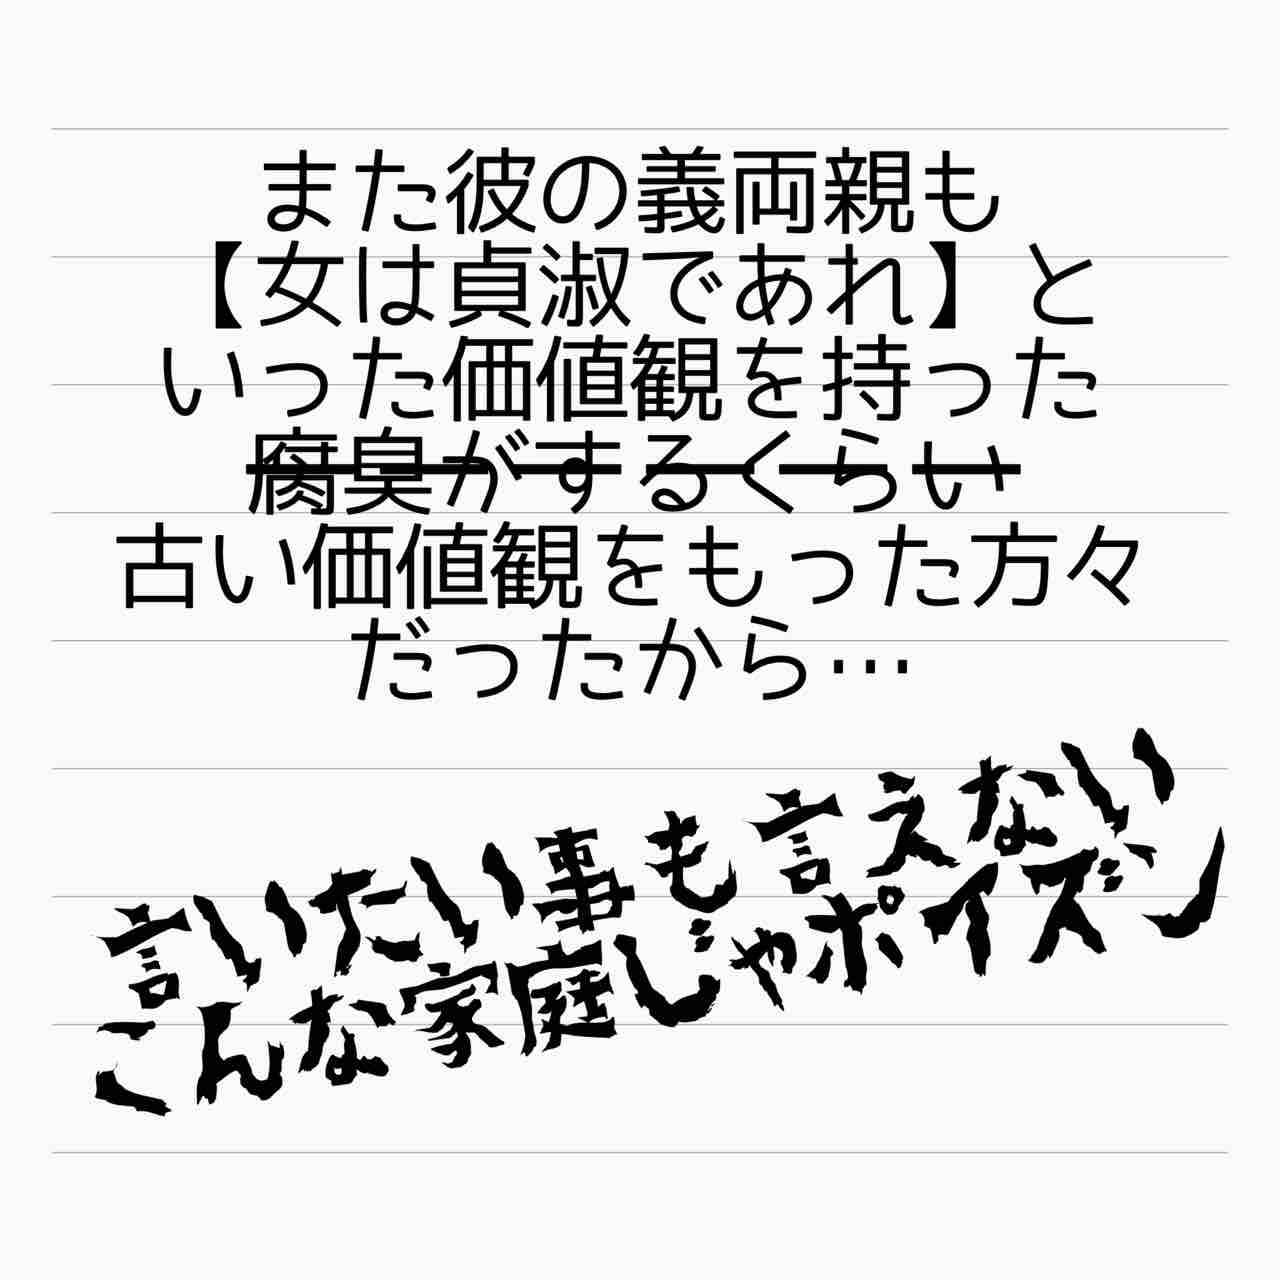 また彼の義両親も
【女は貞淑であれ】と
いった価値観を持った
腐臭がするくらい
古い価値観をもった方々
だったから…
言いたい事も言えない
こんな家庭じゃポイズン